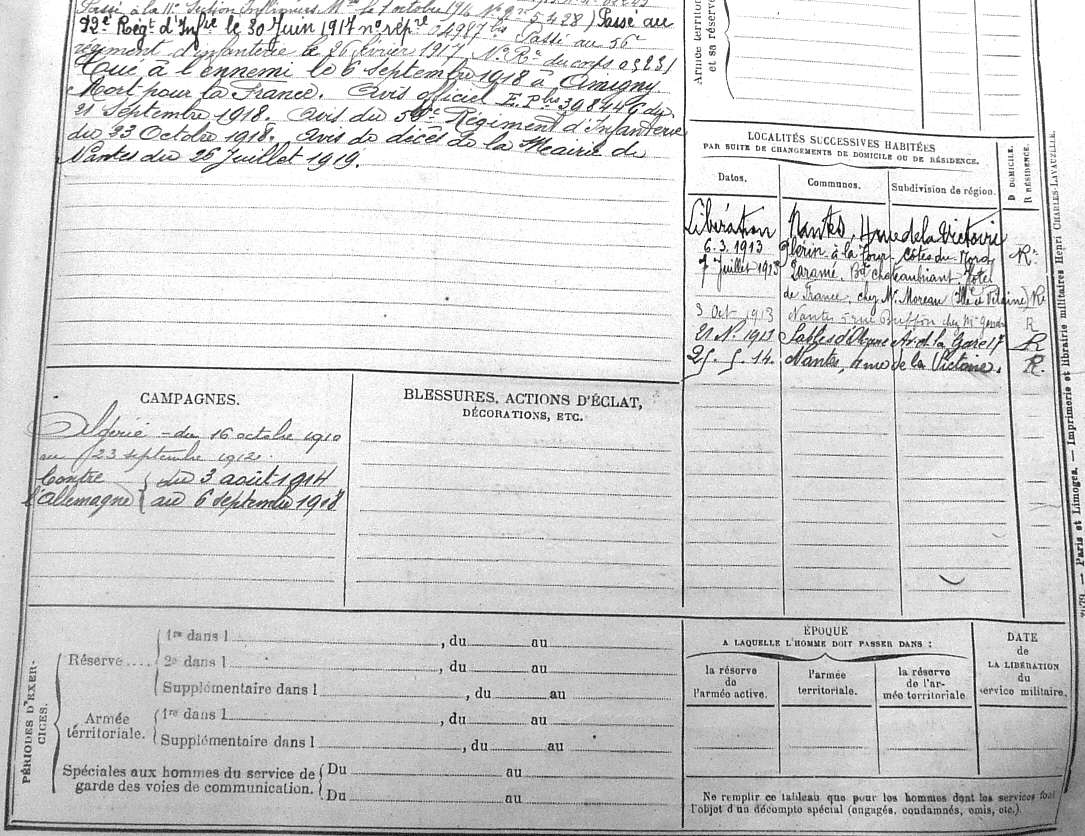 Passé à la 11e Section Infirmiers Mres le 7 octobre 1914 No 5428) Passé au
92e Régt d'Infie le 30 Juin 1917 no répre 04987 bis Passé au 56e
régiment d'infanterie le 26 février 1917 No Re du corps
Tué à l'ennemi le 6 Septembre 1918 à Amigny.
Mort pour la France. Avis officiel E. P. bis 39844 G du
21 Septembre 1918. Avis du 56e Régiment d'Infanterie
du 23 Octobre 1918. Avis de décès de la Mairie de
Nantes du 26 Juillet 1919.
Armée territoriale
et sa réserve
LOCALITÉS SUCCESSIVES HABITÉES
PAR SUITE DE CHANGEMENTS DE DOMICILE OU DE RÉSIDENCE.
D DOMICILE.
R RÉSIDENCE.
Dates. Communes. Subdivision de région.
Libération Nantes, 4 rue de la Victoire
6.3.1913 Plérin à la Côtes du Nord R.
7 Juillet 1913 Paramé, Bd Chateaubriant Hotel
de France, chez Mr Moreau (Ille et Vilaine) Re
3 Oct 1913 Nantes 5 rue Buffon chez Me R
21 N. 1913 Sables d'Olonne Av. de la Gare 17 R
25. 5. 14. Nantes, 4 rue de la Victoire. R.
CAMPAGNES.
Algérie - du 16 octobre 1910
au 23 septembre 1912.
Contre { du 3 août 1914
l'Allemagne { au 6 septembre 1918
BLESSURES, ACTIONS D'ÉCLAT,
DÉCORATIONS, ETC.
PÉRIODES D'EXER-
CICES.
Réserve.... 1re dans l , du au
2e dans l , du au
Supplémentaire dans l , du au
Armée
territoriale.
1re dans l , du au
Supplémentaire dans l , du au
Spéciales aux hommes du service de
garde des voies de communication.
Du au
Du au
ÉPOQUE
A LAQUELLE L'HOMME DOIT PASSER DANS :
la réserve
de l'armée active.
l'armée
territoriale.
la réserve
de l'ar-
mée territoriale
DATE
de
LA LIBÉRATION
du
service militaire.
Ne remplir ce tableau que pour les hommes dont les services font
l'objet d'un décompte spécial (engagés, condamnés, omis, etc.).
— Paris et Limoges. — Imprimerie et librairie militaires Henri CHARLES-LAVAUZELLE.